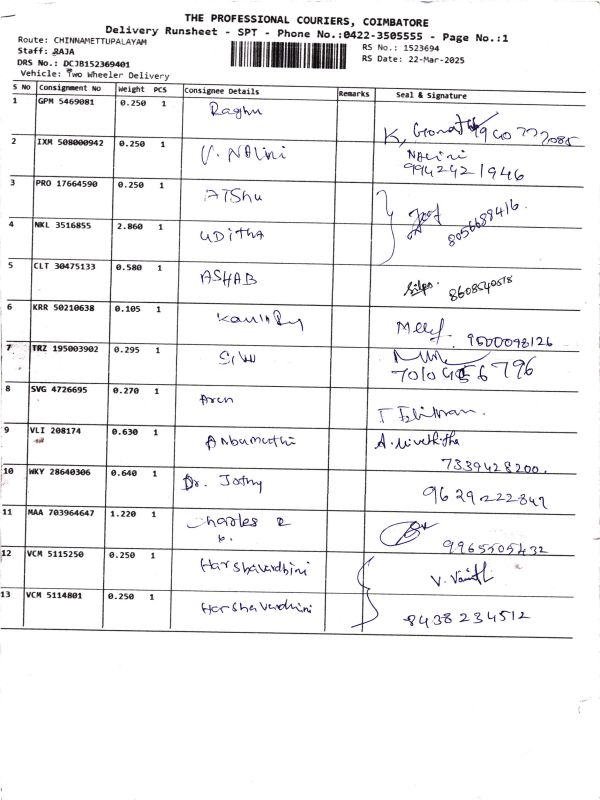 THE PROFESSIONAL COURIERS, COIMBATORE
Delivery Runsheet - SPT - Phone No.:0422-3505555 - Page No.:1
Route: CHINNAMETTUPALAYAM
Staff: RAJA
DRS No.: DCJB152369401
Vehicle: Two Wheeler Delivery
RS No.: 1523694
RS Date: 22-Mar-2025
S No Consignment No Weight PCS Consignee Details Remarks Seal & Signature
1 GPM 5469081 0.250 1 Raghu
2 IXM 508000942 0.250 1 V. NAlini NAlini
9942421946
3 PRO 17664590 0.250 1
4 NKL 3516855 2.860 1 UDitha 8056688416.
5 CLT 30475133 0.580 1 ASHAB
6 KRR 50210638 0.105 1 9500098126
7 TRZ 195003902 0.295 1
8 SVG 4726695 0.270 1
9 VLI 208174 0.630 1 A.Nivethitha
7339428200.
10 WKY 28640306 0.640 1 Dr.
11 MAA 703964647 1.220 1 Charles
9965505432
12 VCM 5115250 0.250 1 Harshavardhini
13 VCM 5114801 0.250 1 Harshavardhini 8438234512